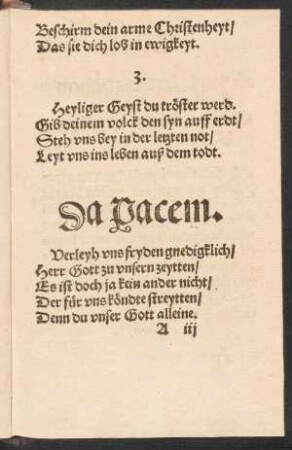 Beschirm dein arme Christenheyt/
Das sie dich loß in ewigkeyt.
3.
Heyliger Geyst du tröster werd.
Gib deinem volck den syn auff erdt/
Steh vns bey in der letzten not/
Leyt vns ins leben auß dem todt.
Da Pacem.
Verleyh vns fryden gnedigklich/
Herr Gott zu vnsern zeytten/
Es ist doch ja kein ander nicht/
Der für vns köndte streytten/
Denn du vnser Gott alleine.
A iij